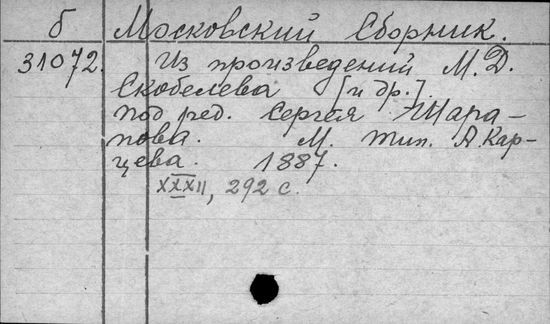 б Московский Сборник.
31072. Из произведений М.Д.
Скобелева [и др.].
Под ред. Сергея Шара-
пова. М. Тип. А.Кар-
цева. 1887.
XXXII, 292 с.